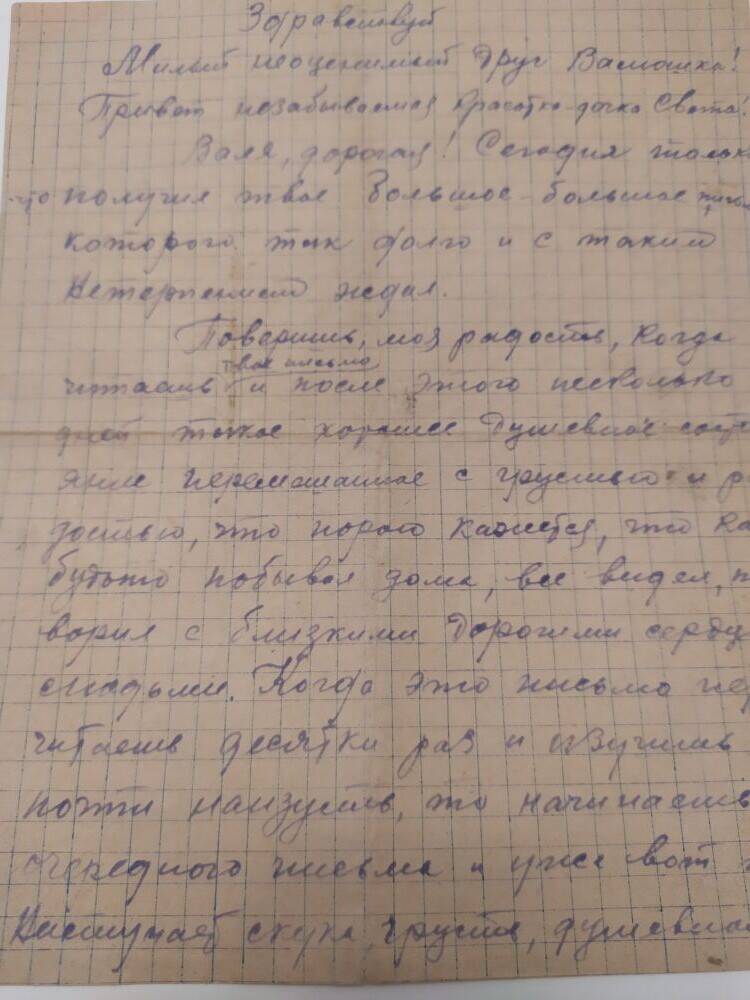 Здравствуй
Милый неоценимый друг Валюшка!
Привет незабываемая красотка-дочка Света!
Валя, дорогая! Сегодня только
что получил твое большое-большое письмо
которого так долго и с таким
нетерпением ждал.
Поверишь, моя радость, когда
твое письмо
читаешь и после этого несколько
дней такое хорошее душевное состо
яние перемешанное с грустью и ра
достью, что порою кажется, что ка
будьто побывал дома, все видел, 
ворил с близкими дорогими сердцу
людьми. Когда это письмо пер
читаешь десятки раз и изучишь
почти наизусть, то начинаешь
очередного письма и уже вот
наступает скука, грусть, душевная